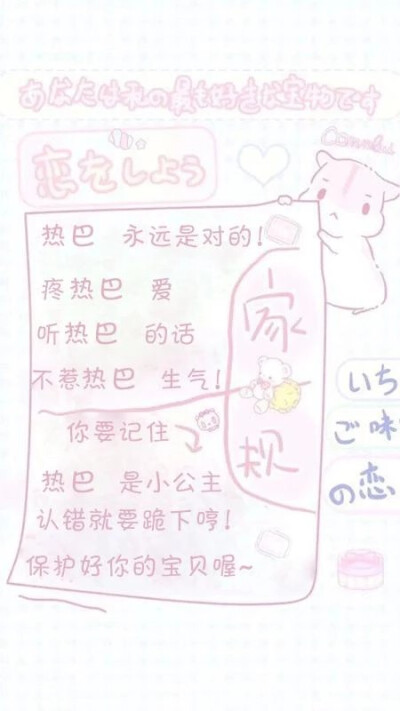 あなたは私の最も好きな宝物です
恋をしよう
热巴 永远是对的!
疼热巴 爱
听热巴 的话
不惹热巴 生气!
家规
你要记住
热巴 是小公主
认错就要跪下哼!
保护好你的宝贝喔~
いち
ご味
の恋